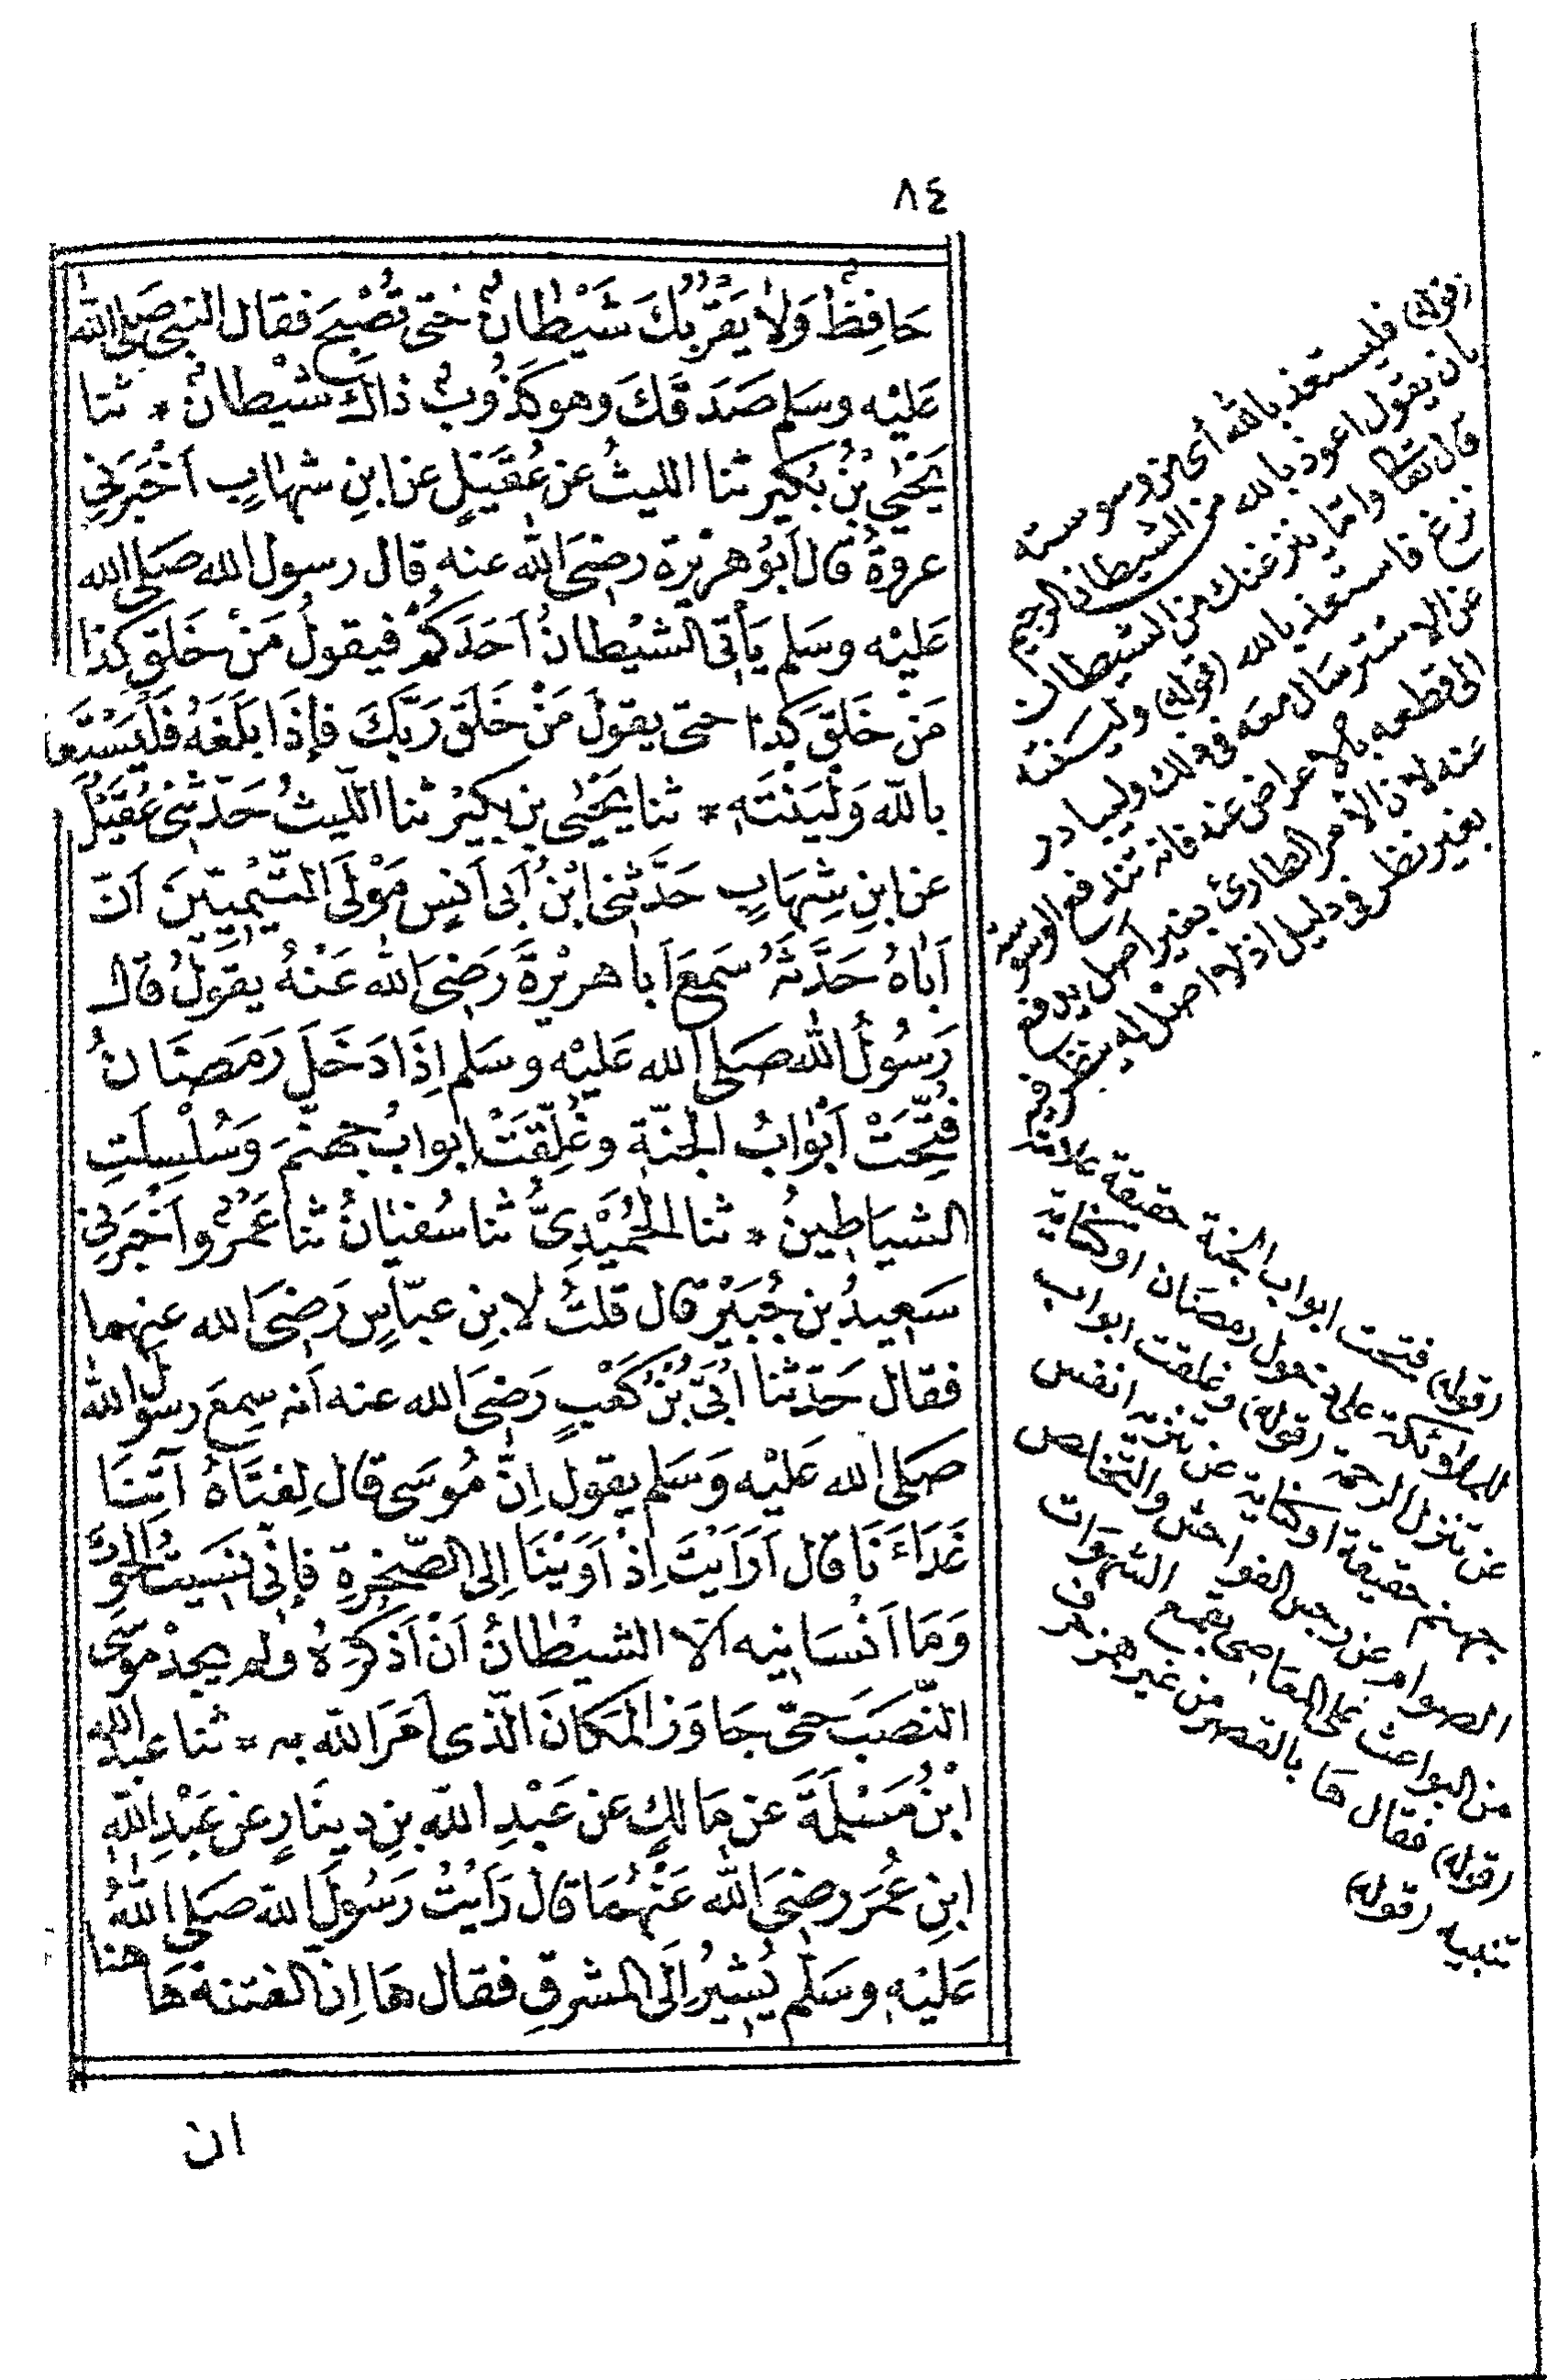 ٨٤
حَافِظٌ وَلَا يَقْرَبُكَ شَيْطَانٌ حَتّى تُصْبِحَ فقال النبي صَلى الله
عَلَيْه وسَلم صَدَقَكَ وهو كَذُوبٌ ذاكَ شَيْطانٌ * ثنا
يَحْيَى بْنُ بُكَيْرٍ ثنا الليثُ عن عُقَيْلٍ عن ابنِ شهابٍ أخْبَرَنِي
عروةُ قال أبُو هريْرة رضىَ الله عنه قال رسول الله صَلى الله
عَلَيْه وسَلم يَأتى الشيْطانُ أحَدَكُمْ فيقولُ مَنْ خَلق كذا
مَنْ خَلَقَ كَذا حتى يقولَ مَنْ خَلَقَ رَبَّكَ فإِذَا بَلَغَهُ فَلْيَسْتَعِذْ
بالله وَلْيَنْتَهِ * ثنا يَحْيَى بن بكيرٍ ثنا اللّيثُ حَدّثنى عُقَيْلٌ
عن ابنِ شِهَابٍ حَدَّثنى ابْنُ أبى أنَسٍ مَوْلَى التَّيْمِيّينَ أنّ
أبَاهُ حَدَّثهُ سَمِعَ أبا هريْرةَ رَضىَ الله عَنْهُ يقولُ قال
رَسُولُ الله صَلى الله عَلَيْه وسَلم إذَا دَخَلَ رَمَضَانُ
فُتِّحَتْ أبْوَابُ الجنّةِ وغُلِّقَتْ ابوابُ جهنّمَ وَسُلْسِلَتِ
الشيَاطِينُ * ثنا الحُمَيْدِىُّ ثنا سُفْيَانُ ثنا عَمْرٌو أخْبَرَنِي
سَعِيدُ بن جُبَيْرٍ قال قلتُ لابنِ عبّاسٍ رَضىَ الله عنهما
فقال حَدّثنا أُبَىُّ بْنُ كَعْبٍ رَضىَ الله عنه أنه سمِعَ رسولَ الله
صَلى الله عَلَيْه وَسَلم يقول إنّ مُوسَى قال لِفتَاهُ آتِنَا
غَدَاءَنَا قال أرَأيْتَ إذْ أوَيْنَا إلى الصّخرةِ فإنّى نَسِيتُ الحُوتَ
وَمَا أنْسَانِيه الّا الشيْطَانُ أنْ أذكُرَهُ ولم يجدْ موسَى
النّصَبَ حتّى جَاوَزَ المَكانَ الّذى أمَرَ الله به * ثنا عبدُ الله
ابْنُ مَسْلَمَةَ عن مَالكٍ عن عَبْدِ الله بنِ دينَارٍ عن عَبْدِ الله
ابنِ عُمَرَ رضىَ الله عَنْهُمَا قال رَأيْتُ رَسُولَ الله صَلى اللهُ
عَلَيْهِ وسَلّم يُشيرُ إلَى المشرقِ فقال هَا إنّ الفتنةَ هَا هنا
ان
(قوله) فليستعذ بالله أى من وسوسته
بأن يقول اعوذ بالله من الشيطان الرجيم
قال تعالى واما ينزغنك من الشيطان
نزغ فاستعذ بالله (قوله) ولينته
عن الاسترسال معه فى ذلك وليبادر
الى قطعه بالاعراض عنه فانه تندفع الوسوسة
عنه لأن الأمر الطارئ بغير أصل يدفع
بغير نظر فى دليل اذ لا أصل له ينظر فيه
(قوله) فتحت ابواب الجنة حقيقة علامة
للملائكة على دخول رمضان أو كناية
عن تنزل الرحمة (قوله) وغلقت ابواب
جهنم حقيقة أو كناية عن تنزيه انفس
الصوام عن رجس الفواحش والتخلص
من البواعث على المعاصى بقمع الشهوات
(قوله) فقال ها بالقصر من غير همز حرف
تنبيه (قوله)